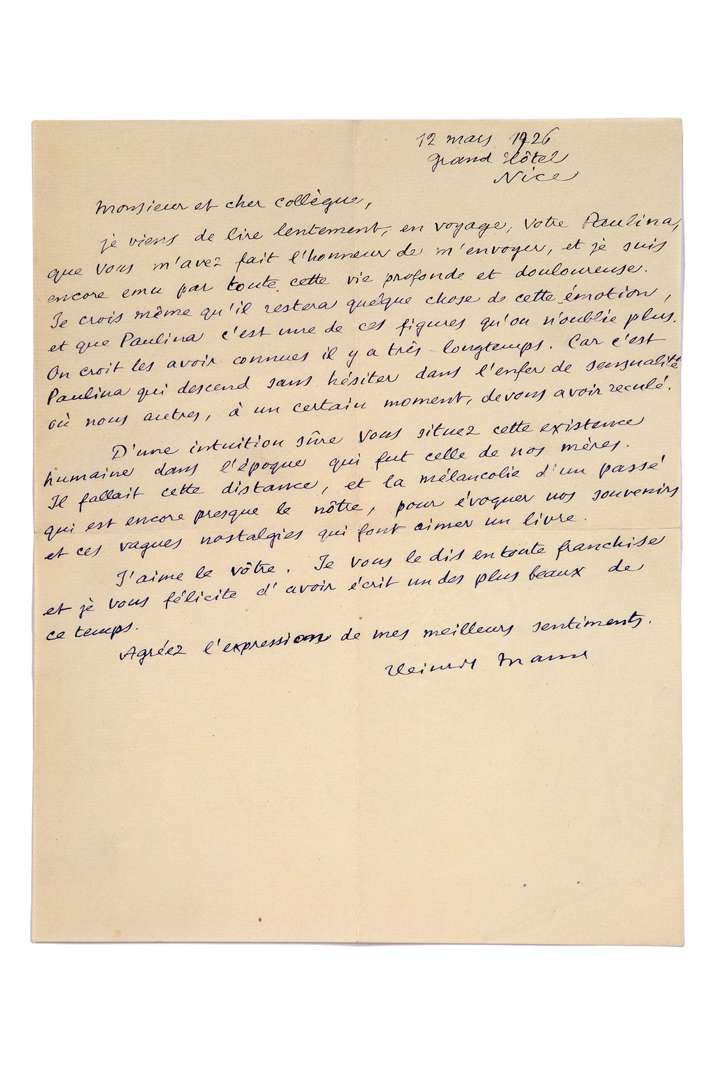 12 mars 1926
Grand Hôtel
Nice
Monsieur et cher collègue,
je viens de lire lentement, en voyage, votre Paulina,
que vous m'avez fait l'honneur de m'envoyer, et je suis
encore emu par toute cette vie profonde et douloureuse.
Je crois même qu'il restera quelque chose de cette émotion,
et que Paulina c'est une de ces figures qu'on n'oublie plus.
On croit les avoir connues il y a très longtemps. Car c'est
Paulina qui descend sans hésiter dans l'enfer de sensualité
où nous autres, à un certain moment, devons avoir reculé.
D'une intuition sûre vous situez cette existance
humaine dans l'époque qui fut celle de nos mères.
Il fallait cette distance, et la mélancolie d'un passé
qui est encore presque le nôtre, pour évoquer nos souvenirs
et ces vagues nostalgies qui font aimer un livre.
J'aime le vôtre. Je vous le dis en toute franchise
et je vous félicite d'avoir écrit un des plus beaux de
ce temps.
Agréez l'expression de mes meilleurs sentiments.
Heinrich Mann